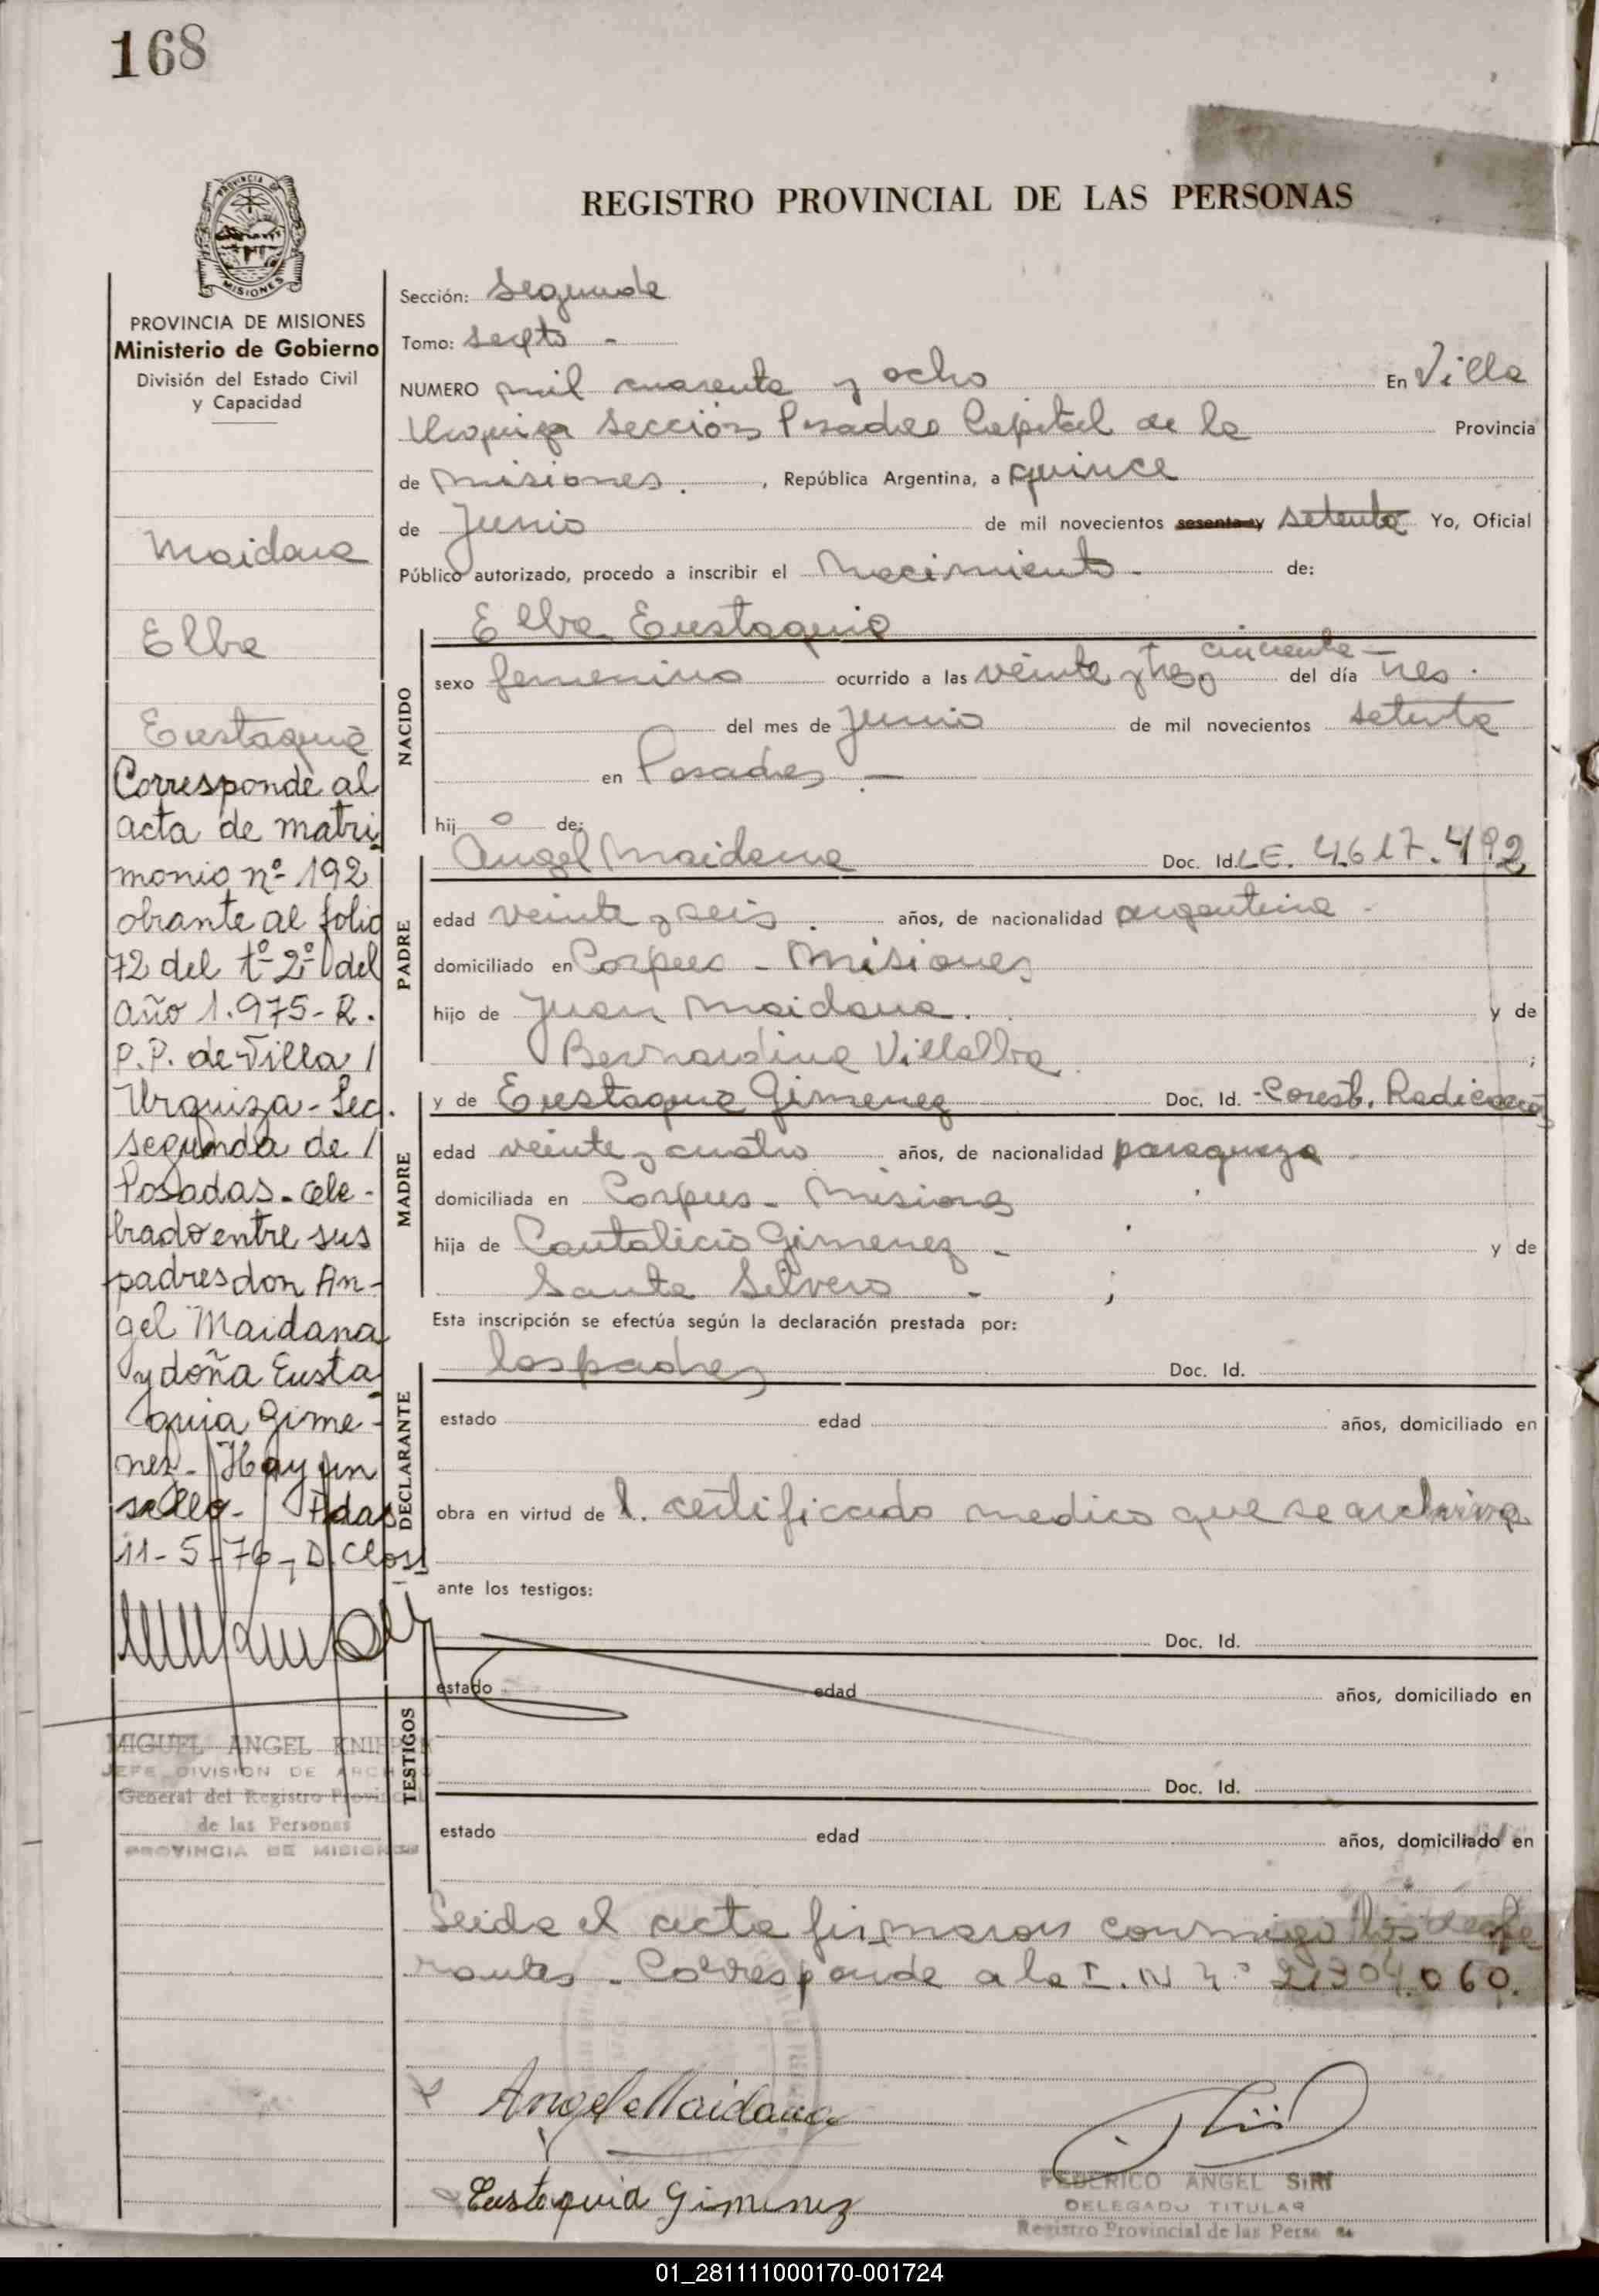 168
REGISTRO PROVINCIAL DE LAS PERSONAS
PROVINCIA DE MISIONES
MISIONES
PROVINCIA DE MISIONES
Ministerio de Gobierno
División del Estado Civil
y Capacidad
Maidana
Elba
Eustaquia
Corresponde al
acta de matri
monio nº 192
obrante al folio
72 del tº 2º del
año 1.975- R.
P.P. de Villa /
Urquiza - Sec.
segunda de /
Posadas - cele-
brado entre sus
padres don An-
gel Maidana
y doña Eusta
quia Gime-
nez - Hay un
sello - Pdas
11-5-76 - D. Closs
MIGUEL ANGEL
JEFE DIVISION DE
General del Registro Provincial
de las Personas
PROVINCIA DE MISIONES
Sección: Segunda
Tomo: sexto -
NUMERO mil cuarenta y ocho En Villa
Urquiza Sección Posadas Capital de la Provincia
de misiones. , República Argentina, a quince
de Junio de mil novecientos sesenta y setenta Yo, Oficial
Público autorizado, procedo a inscribir el Nacimiento - de:
NACIDO
Elba Eustaquia
cincuenta
sexo femenino ocurrido a las veinte y tres del día tres.
del mes de Junio de mil novecientos setenta
en Posadas. -
hij a de:
PADRE
Angel Maidana Doc. Id. L.E. 4.617.492
edad veinte y seis. años, de nacionalidad argentina -
domiciliado en Corpus - Misiones
hijo de Juan Maidana. y de
Bernardina Villalba ;
MADRE
y de Eustaquia Gimenez Doc. Id. - Const. Radicación
edad veinte y cuatro años, de nacionalidad paraguaya
domiciliada en Corpus - Misiones
hija de Cantalicio Gimenez - y de
Santa Silvero - ;
Esta inscripción se efectúa según la declaración prestada por:
DECLARANTE
los padres Doc. Id.
estado edad años, domiciliado en
obra en virtud de l. certificado medico que se archiva
ante los testigos:
TESTIGOS
Doc. Id.
estado edad años, domiciliado en
Doc. Id.
estado edad años, domiciliado en
Leida el acta firmaron conmigo los decla
rantes - Corresponde a la I. N nº 21304.060.
Angel Maidana
Eustaquia Gimenez
FEDERICO ANGEL SIRI
DELEGADO TITULAR
Registro Provincial de las Perso as
01_281111000170-001724